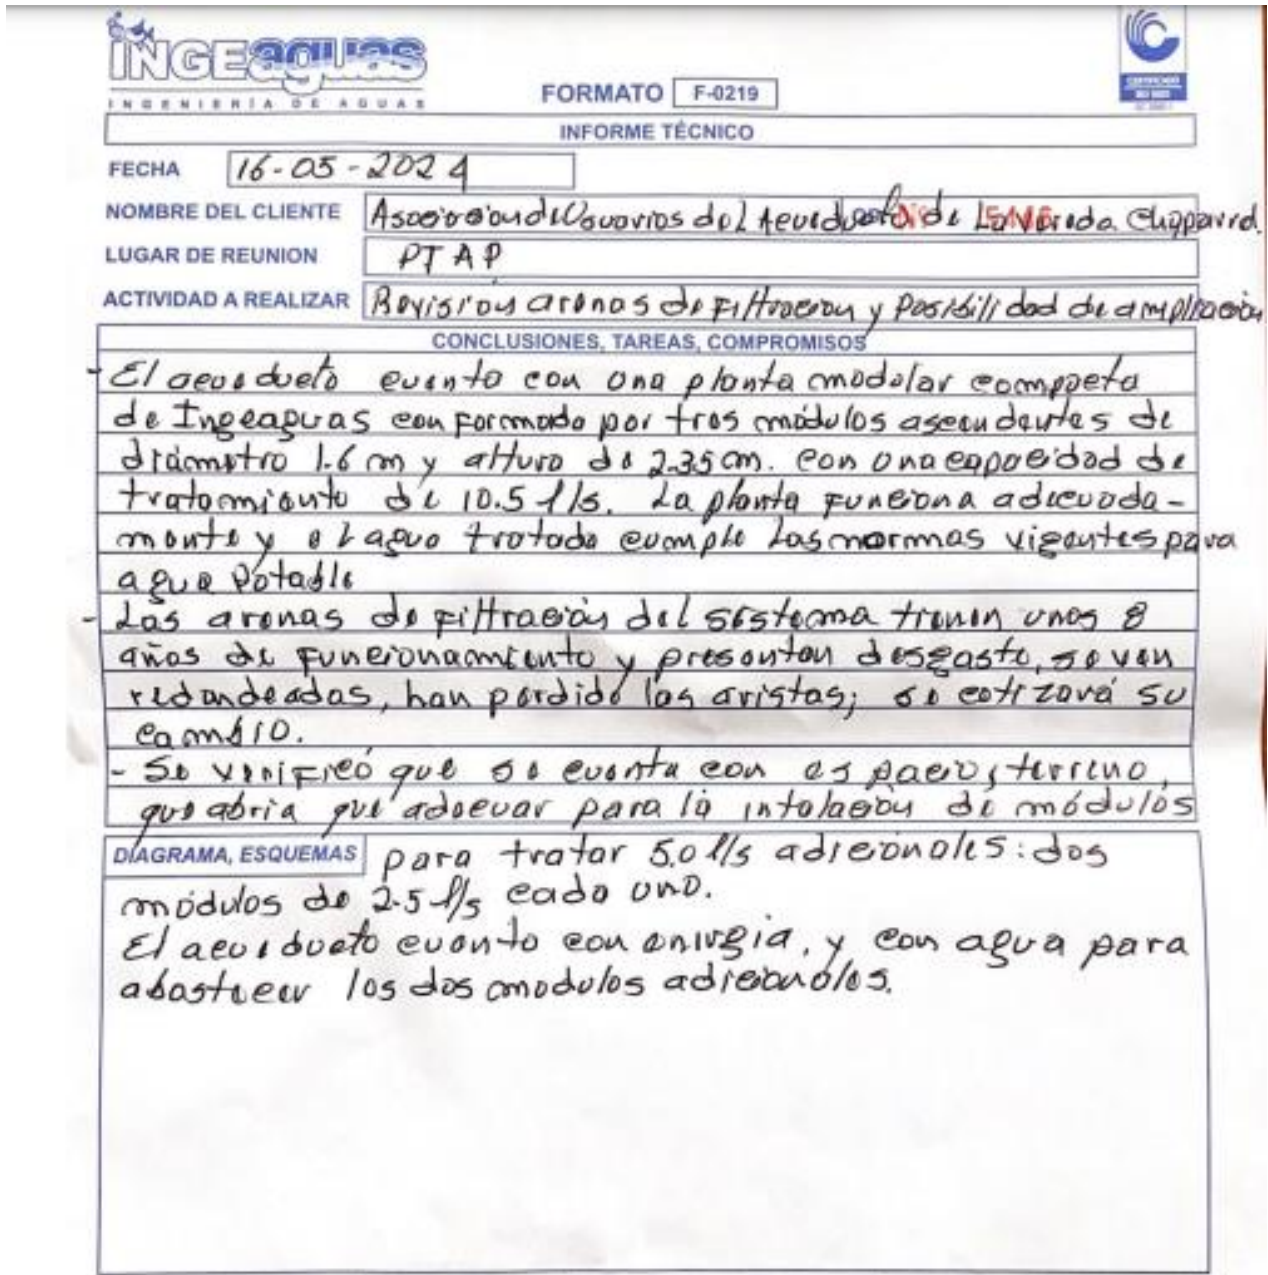 INGEaguas
INGENIERÍA DE AGUAS
FORMATO F-0219
INFORME TÉCNICO
FECHA 16-05-2024
NOMBRE DEL CLIENTE Asociacion de Usuarios del Acueducto de La Vereda Chaparral.
LUGAR DE REUNION PTAP
ACTIVIDAD A REALIZAR Revisión arenas de Filtracion y Posibilidad de ampliación
CONCLUSIONES, TAREAS, COMPROMISOS
- El acueducto cuenta con una planta modular compacta
de Ingeaguas conformada por tres módulos ascendentes de
diámetro 1.6 m y altura de 2.35 m. con una capacidad de
tratamiento de 10.5 l/s. La planta funciona adecuada-
mente y el agua tratada cumple las normas vigentes para
agua Potable
- Las arenas de filtración del sistema tienen unos 8
años de funcionamiento y presentan desgaste, se ven
redondeadas, han perdido las aristas; se cotizará su
cambio.
- Se verificó que se cuenta con espacio, terreno
que abria que adecuar para la intalación de módulos
DIAGRAMA, ESQUEMAS para tratar 5.0 l/s adicionales: dos
módulos de 2.5 l/s cada uno.
El acueducto cuenta con energia, y con agua para
abastecer los dos modulos adicionales.